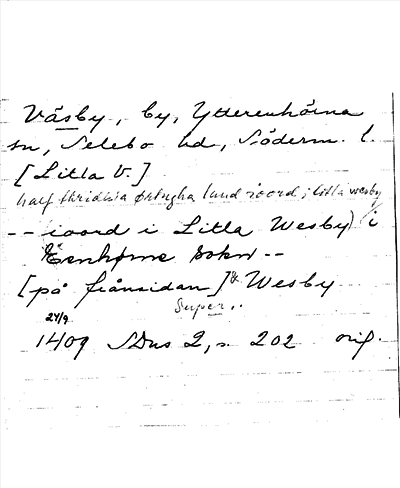 Väsby, by, Ytterenhörna
sn, Selebo hd, Söderm. l.
[Litla V.]
half thridhia ørtugha land ioord i litla wesby
-- ioord i Litla Wesby) i
Eenhørne sokn --
[på frånsidan] Wesby
Super..
24/9
1409 SDns 2, s. 202 orig.